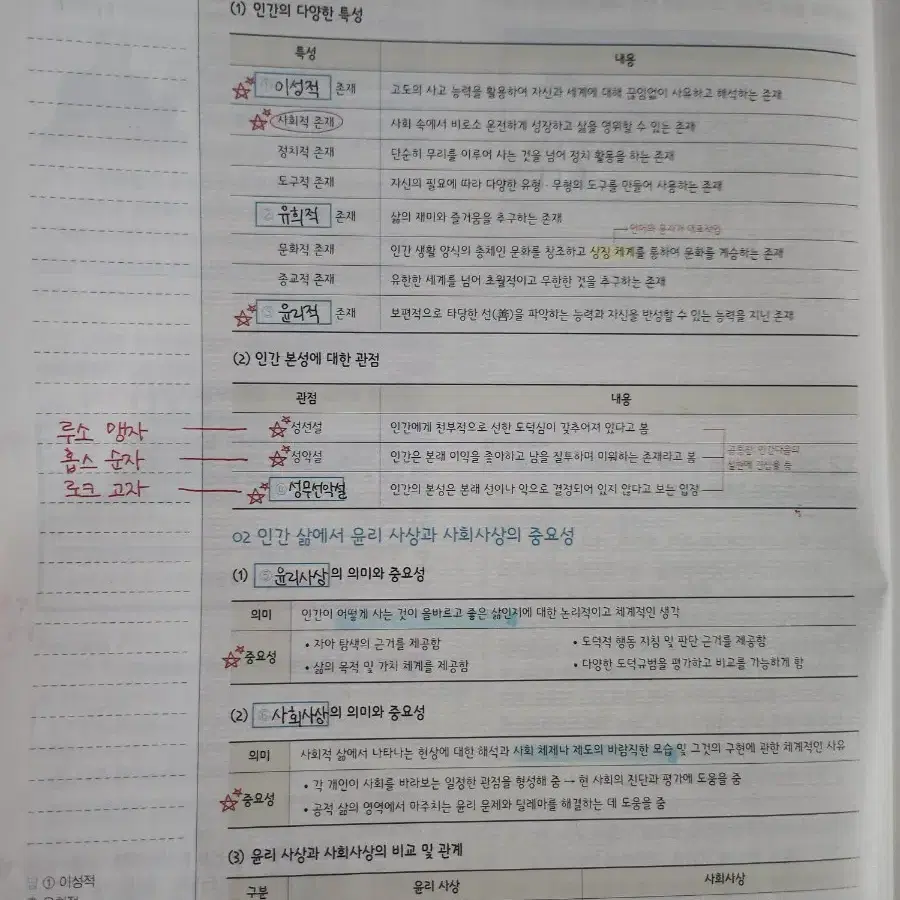 (1) 인간의 다양한 특성
특성 내용
① 이성적 존재 고도의 사고 능력을 활용하여 자신과 세계에 대해 끊임없이 사유하고 해석하는 존재
사회적 존재 사회 속에서 비로소 온전하게 성장하고 삶을 영위할 수 있는 존재
정치적 존재 단순히 무리를 이루어 사는 것을 넘어 정치 활동을 하는 존재
도구적 존재 자신의 필요에 따라 다양한 유형·무형의 도구를 만들어 사용하는 존재
② 유희적 존재 삶의 재미와 즐거움을 추구하는 존재
언어와 문자가 대표적임
문화적 존재 인간 생활 양식의 총체인 문화를 창조하고 상징 체계를 통하여 문화를 계승하는 존재
종교적 존재 유한한 세계를 넘어 초월적이고 무한한 것을 추구하는 존재
③ 윤리적 존재 보편적으로 타당한 선(善)을 파악하는 능력과 자신을 반성할 수 있는 능력을 지닌 존재
(2) 인간 본성에 대한 관점
관점 내용
루소 맹자 성선설 인간에게 천부적으로 선한 도덕심이 갖추어져 있다고 봄
홉스 순자 성악설 인간은 본래 이익을 좋아하고 남을 질투하며 미워하는 존재라고 봄
공통점: 인간다움의
실현에 관심을 둠
로크 고자 성무선악설 인간의 본성은 본래 선이나 악으로 결정되어 있지 않다고 보는 입장
02 인간 삶에서 윤리 사상과 사회사상의 중요성
(1) ⑤ 윤리사상의 의미와 중요성
의미 인간이 어떻게 사는 것이 올바르고 좋은 삶인지에 대한 논리적이고 체계적인 생각
중요성 • 자아 탐색의 근거를 제공함 • 도덕적 행동 지침 및 판단 근거를 제공함
• 삶의 목적 및 가치 체계를 제공함 • 다양한 도덕규범을 평가하고 비교를 가능하게 함
(2) ⑥ 사회사상의 의미와 중요성
의미 사회적 삶에서 나타나는 현상에 대한 해석과 사회 체제나 제도의 바람직한 모습 및 그것의 구현에 관한 체계적인 사유
중요성 • 각 개인이 사회를 바라보는 일정한 관점을 형성해 줌 → 현 사회의 진단과 평가에 도움을 줌
• 공적 삶의 영역에서 마주치는 윤리 문제와 딜레마를 해결하는 데 도움을 줌
(3) 윤리 사상과 사회사상의 비교 및 관계
구분 윤리 사상 사회사상
답 ① 이성적